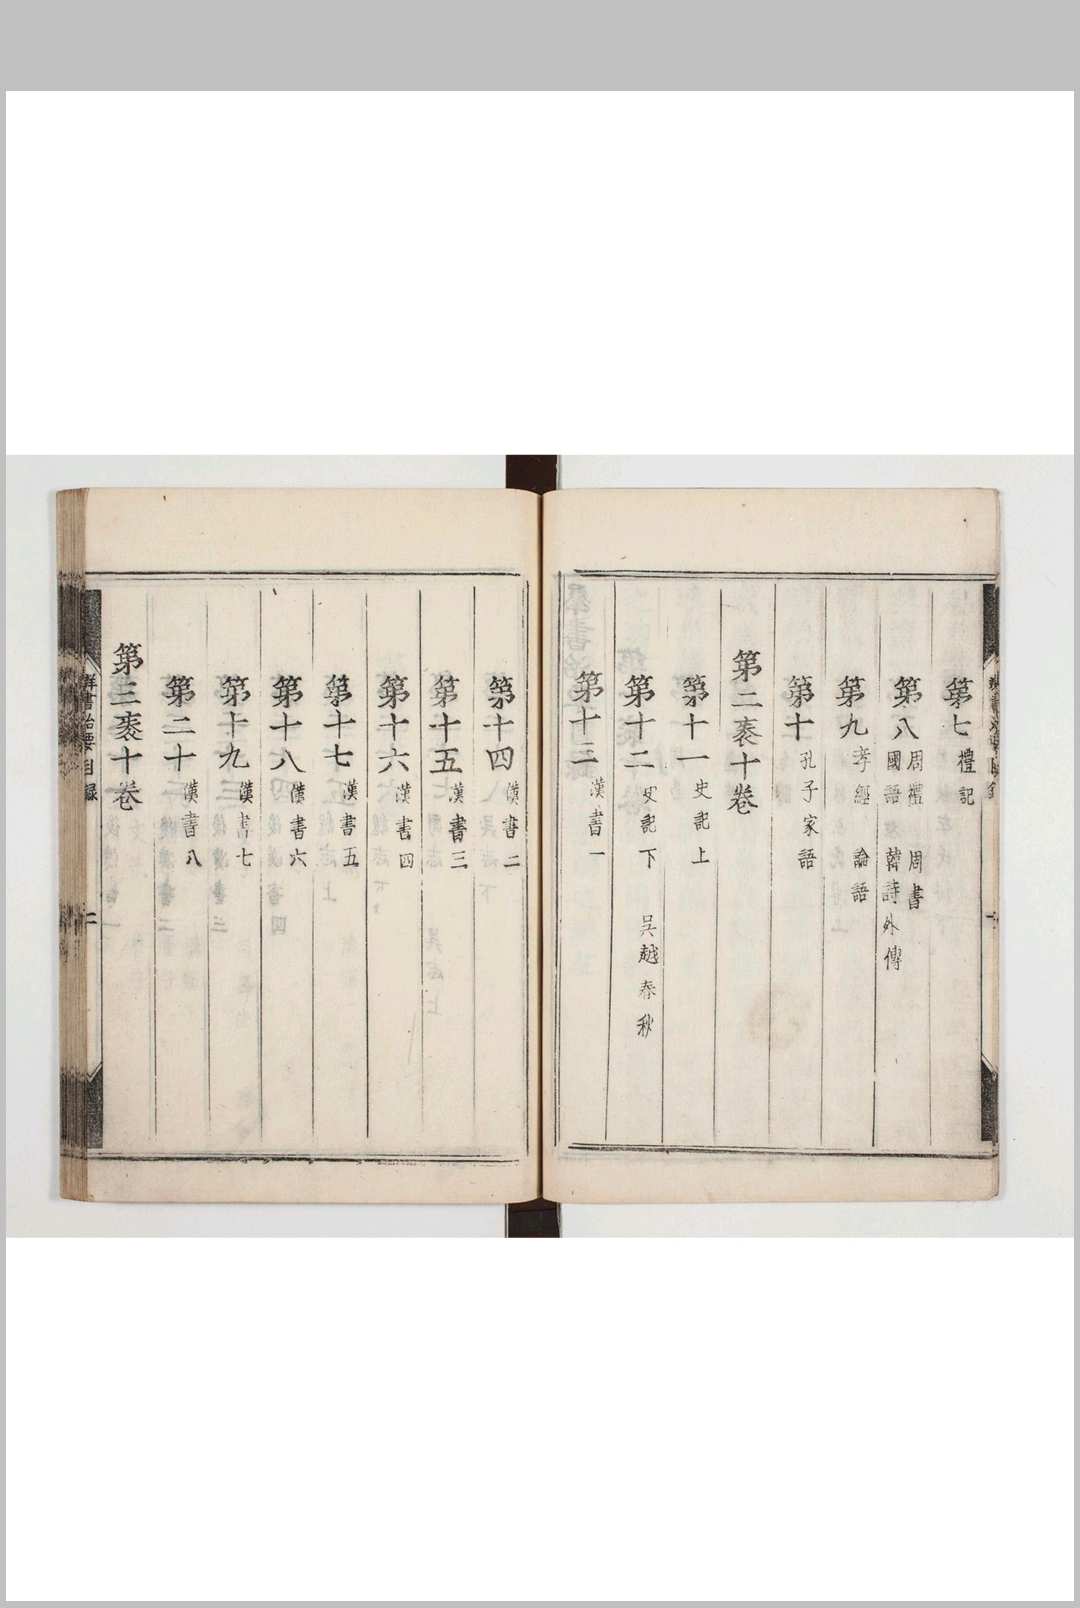 第七 禮記
第八 周禮 周書 國語 韓詩外傳
第九 孝經 論語
第十 孔子家語
第二袠十卷
第十一 史記上
第十二 史記下 吳越春秋
第十三 漢書一
第十四 漢書二
第十五 漢書三
第十六 漢書四
第十七 漢書五
第十八 漢書六
第十九 漢書七
第二十 漢書八
第三袠十卷
群書治要目録 二